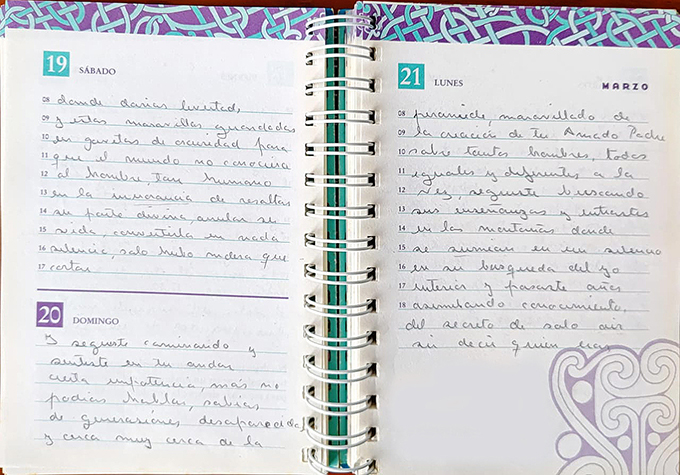 19 SÁBADO
08 donde darias libertad,
09 y estas maravillas guardadas
10 en gavetas de oscuridad para
11 que el mundo no conociera
12 al hombre, tan humano
13 en la ignorancia de resaltar
14 su parte divina, anular su
15 vida, convertirla en nada
16 silencio, solo hubo madera que
17 cortar.
20 DOMINGO
Y seguiste caminando y
sentiste en tu andar
cierta impotencia, más no
podias hablar, sabias
de generaciones desaparecidas
y cerca muy cerca de la
21 LUNES
MARZO
08 piramide, maravillado de
09 la creación de tu Amado Padre
10 sobre tantos hombres, todos
11 iguales y diferentes a la
12 vez, seguiste buscando
13 sus enseñanzas y entrastes
14 en las montañas donde
15 se sumian en un silencio
16 en su busqueda del yo
17 interior y pasaste años
18 asimilando conocimiento,
del secreto de solo oir
sin decir quien eras